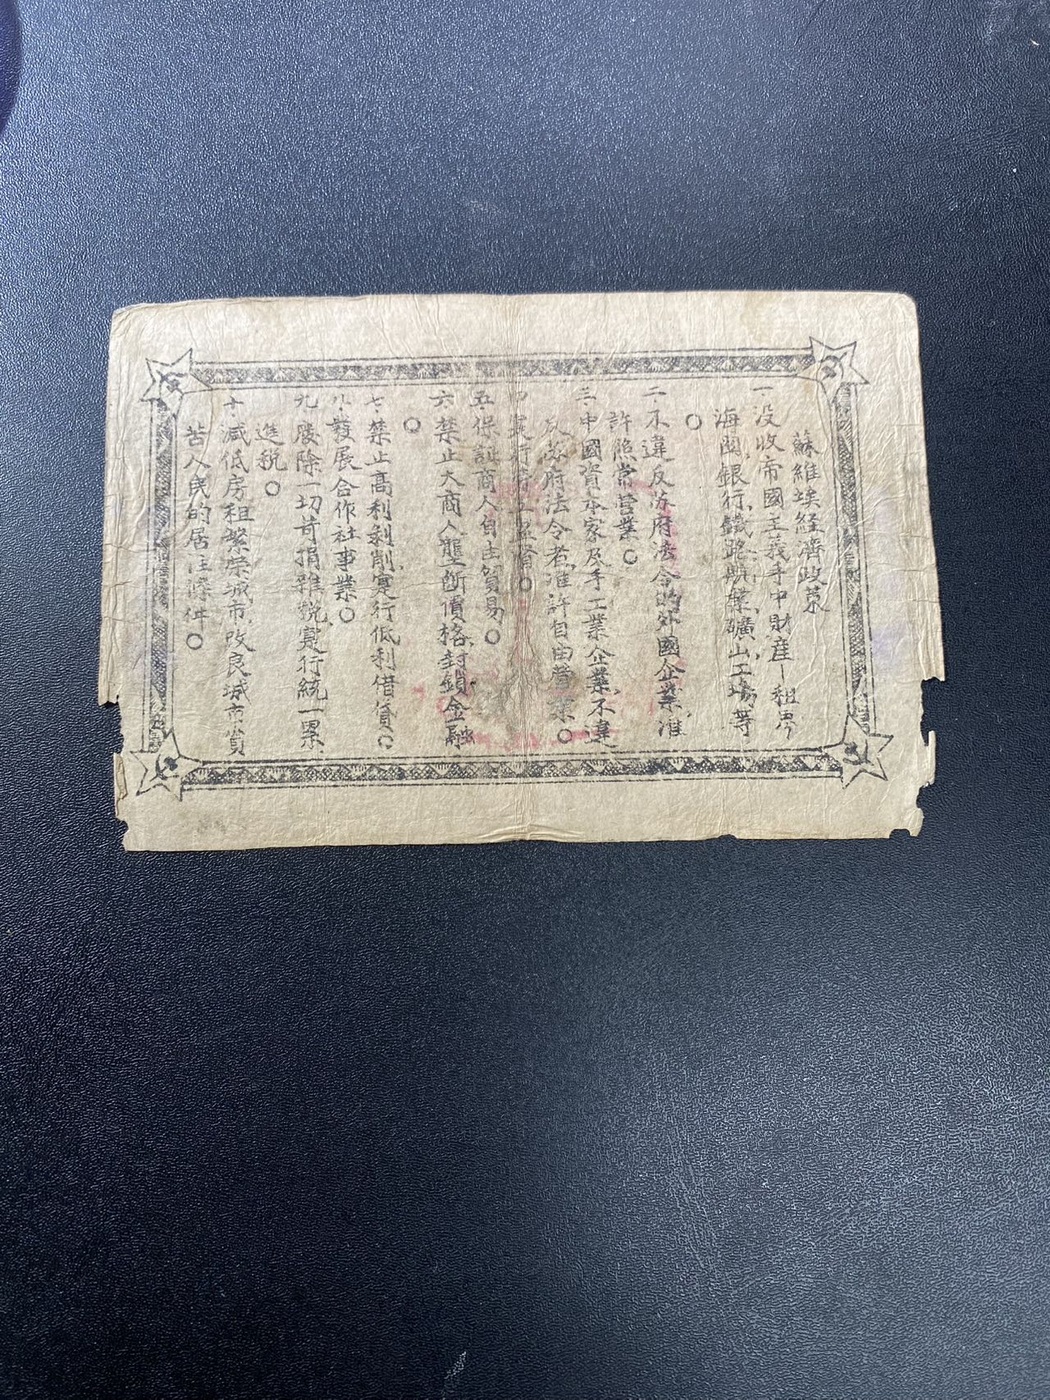 蘇維埃經濟政策
一沒收帝國主義手中財產—租界
海関銀行鐵路航業礦山工場等
○
二不違反政府法令的外國企業准
許照常营業○
三中國資本家及手工業企業不違
反政府法令者准許自由營業○
四實行
五保証商人自由貿易○
六禁止大商人壟断價格封鎖金融
○
七禁止高利剥削寔行低利借貸○
八發展合作社事業○
九廢除一切苛捐雜稅寔行統一累
進税○
十减低房租繁荣城市改良城市貧
苦人民的居住條件○